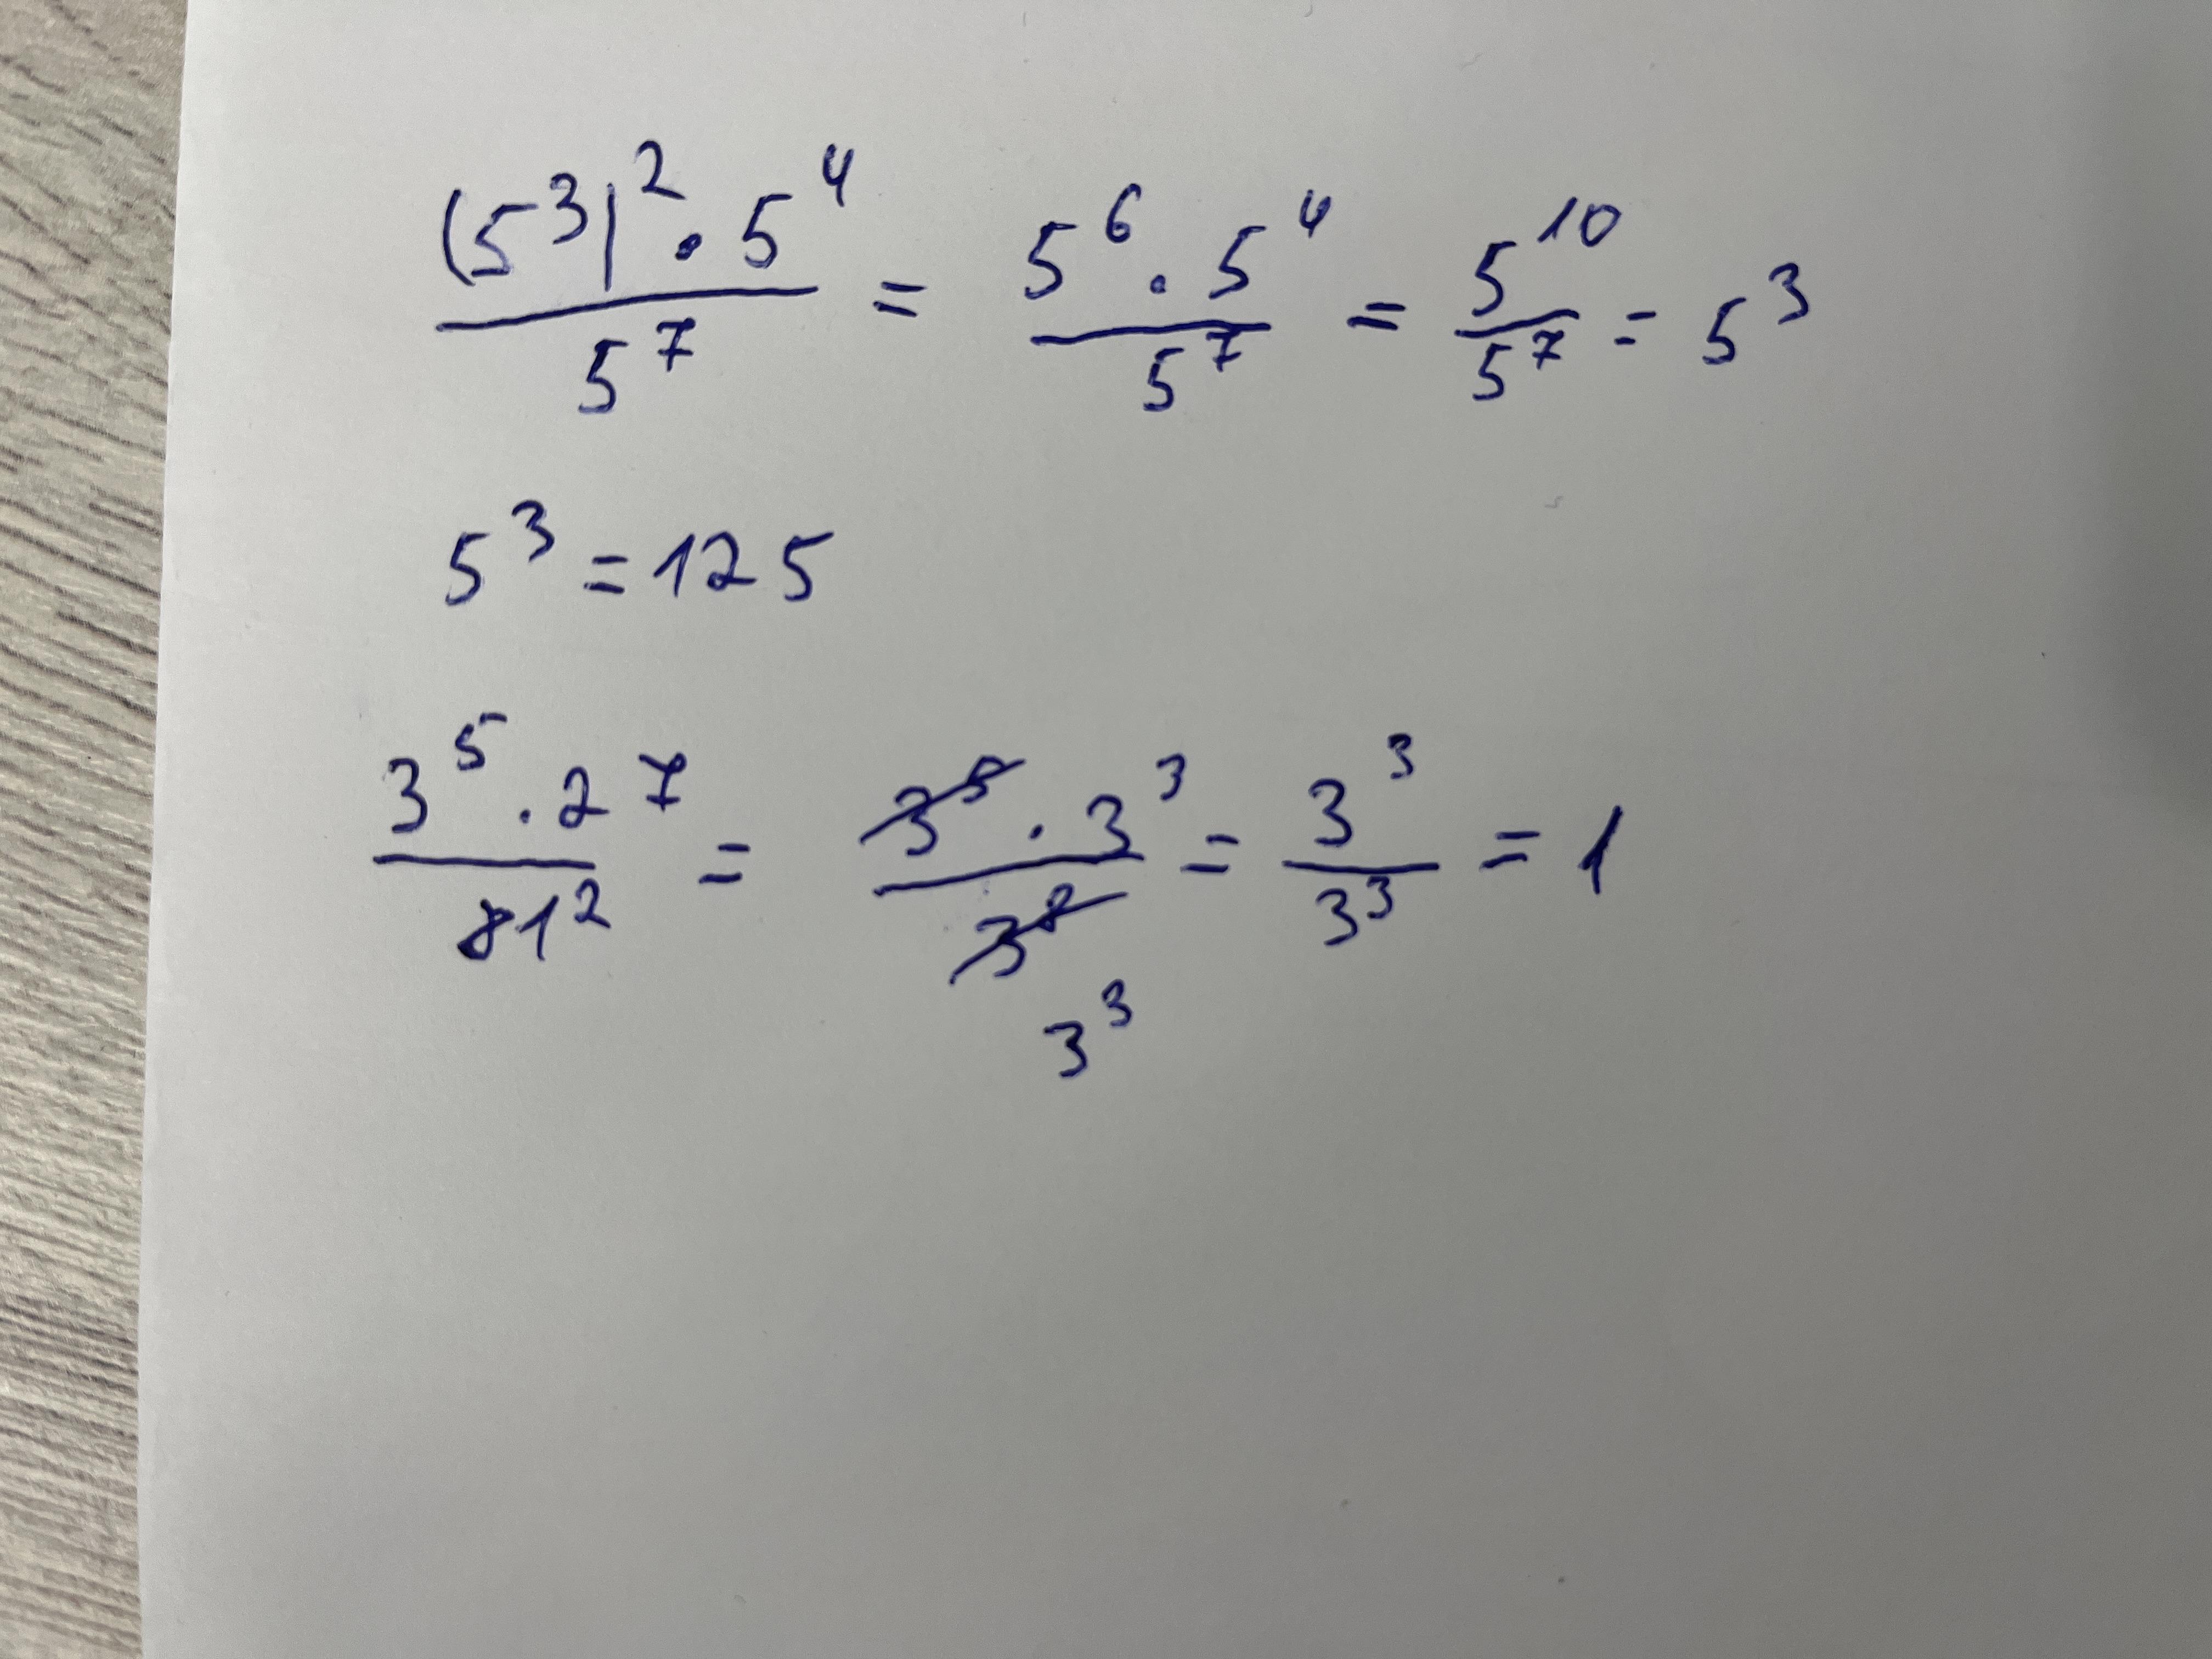 (5³)² · 5⁴ / 5⁷ = 5⁶ · 5⁴ / 5⁷ = 5¹⁰ / 5⁷ = 5³
5³ = 125
3⁵ · 2⁷ / 81² = 3⁵ · 3³ / 3⁸ = 3³ / 3³ = 1
3³